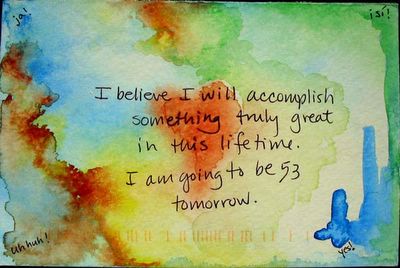 ja!
¡sí!
I believe I will accomplish
something truly great
in this lifetime.
I am going to be 53
tomorrow.
uh huh!
yes!